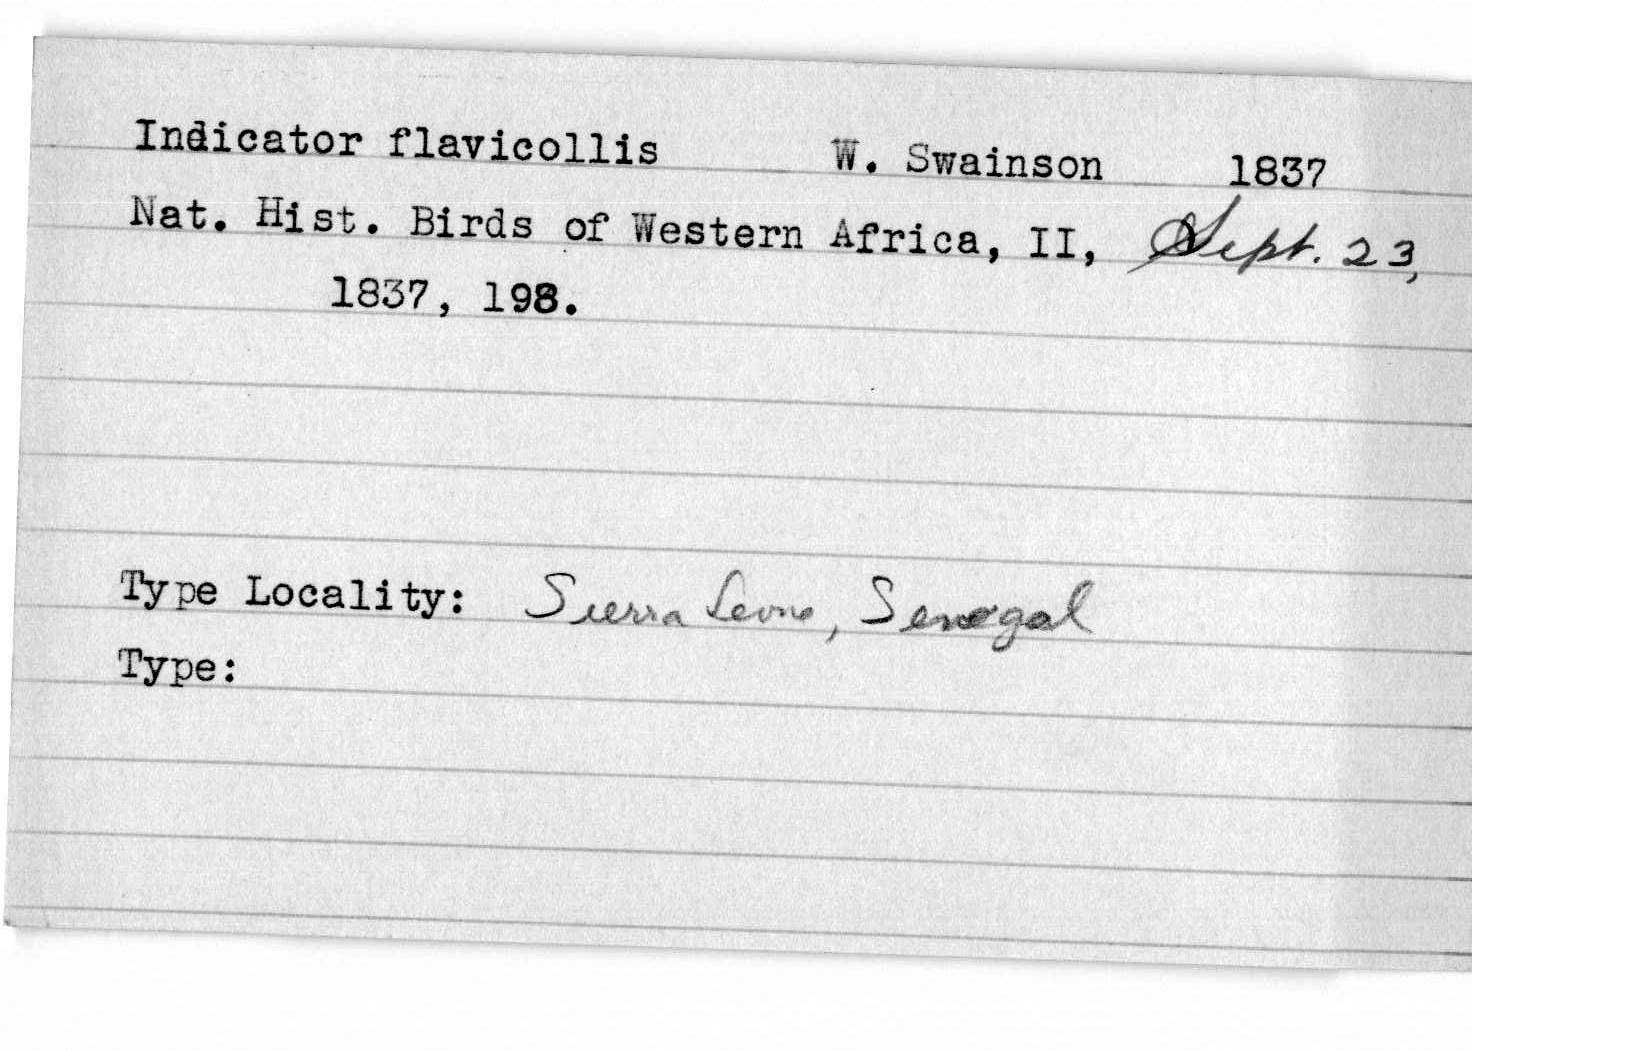 Indicator flavicollis W. Swainson 1837
Nat. Hist. Birds of Western Africa, II, Sept. 23,
1837, 198.
Type Locality: Sierra Leone, Senegal
Type: